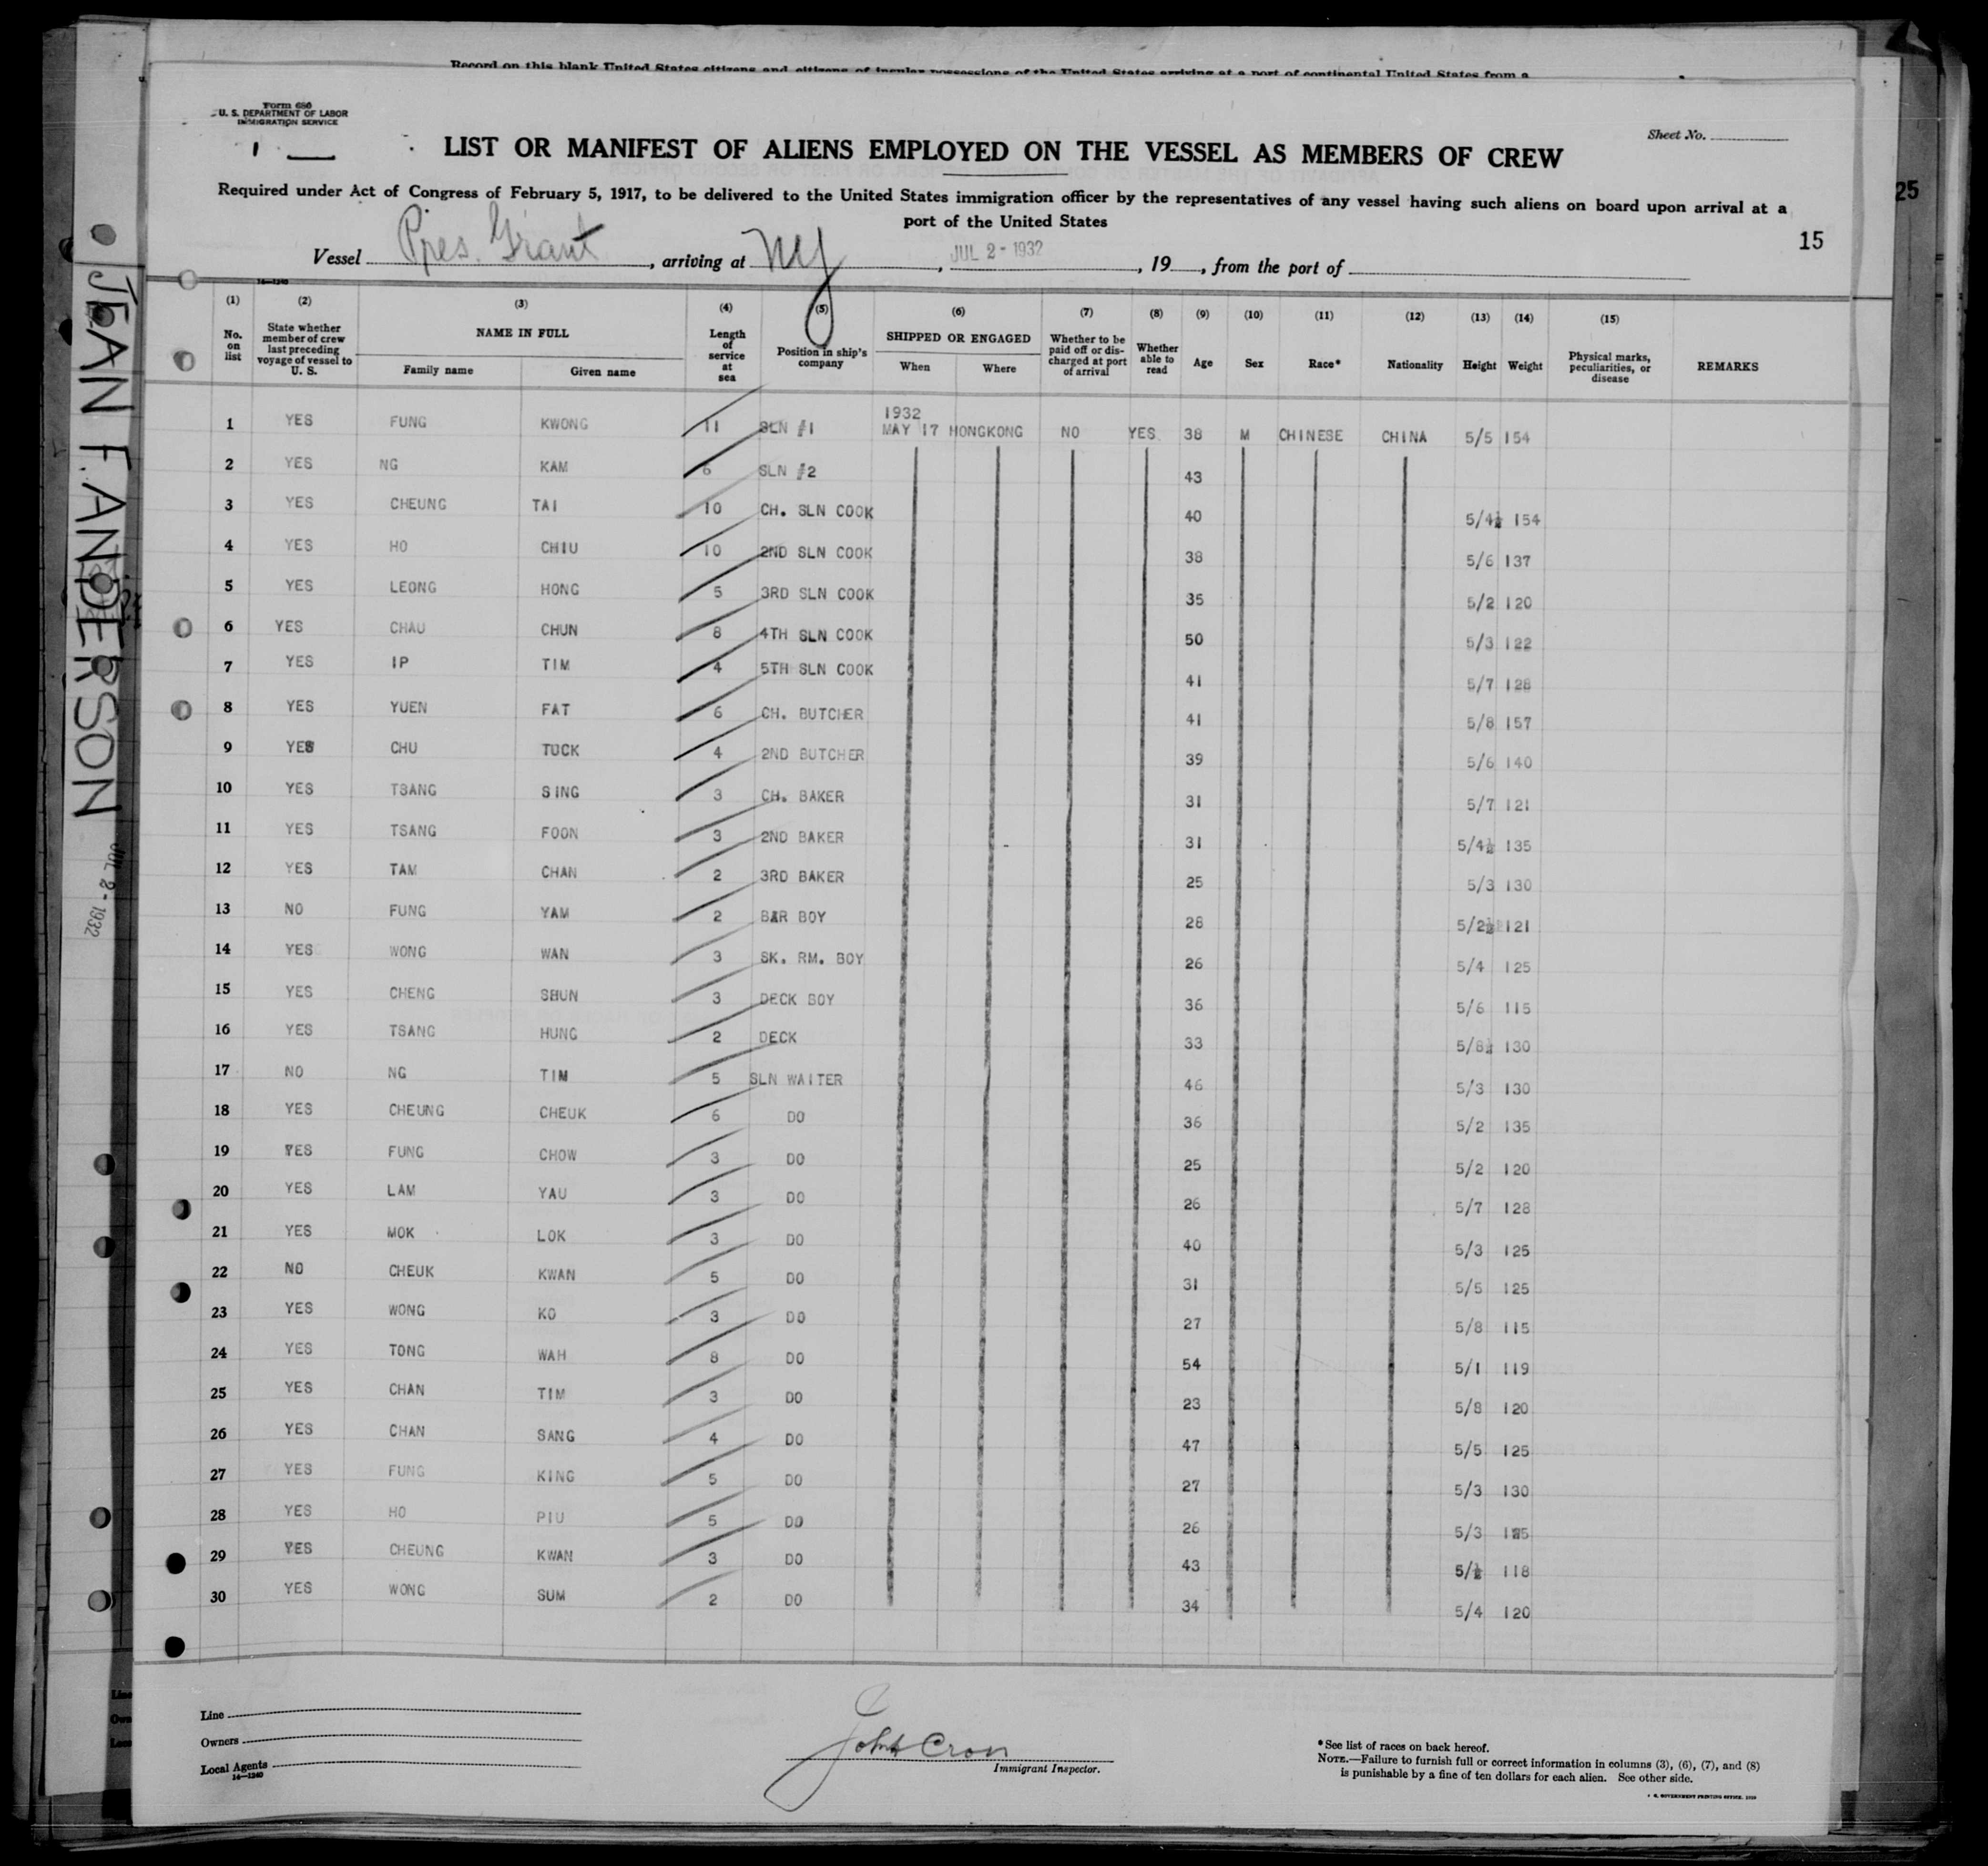 Record on this blank United States citizens and citizens of insular possessions of the United States arriving at a port of continental United States from a
Form 680
U. S. DEPARTMENT OF LABOR
IMMIGRATION SERVICE
Sheet No.
LIST OR MANIFEST OF ALIENS EMPLOYED ON THE VESSEL AS MEMBERS OF CREW
Required under Act of Congress of February 5, 1917, to be delivered to the United States immigration officer by the representatives of any vessel having such aliens on board upon arrival at a
port of the United States
25
15
Vessel Pres. Grant, arriving at NY, JUL 2 - 1932, 19, from the port of
JEAN F. ANDERSON
JUL 2 - 1932
(1) No. on list (2) State whether member of crew last preceding voyage of vessel to U. S. (3) NAME IN FULL Family name Given name (4) Length of service at sea (5) Position in ship's company (6) SHIPPED OR ENGAGED When Where (7) Whether to be paid off or discharged at port of arrival (8) Whether able to read (9) Age (10) Sex (11) Race* (12) Nationality (13) Height (14) Weight (15) Physical marks, peculiarities, or disease REMARKS
1 YES FUNG KWONG 11 SLN #1 1932 MAY 17 HONGKONG NO YES 38 M CHINESE CHINA 5/5 154
2 YES NG KAM 6 SLN #2 43
3 YES CHEUNG TAI 10 CH. SLN COOK 40 5/4½ 154
4 YES HO CHIU 10 2ND SLN COOK 38 5/6 137
5 YES LEONG HONG 5 3RD SLN COOK 35 5/2 120
6 YES CHAU CHUN 8 4TH SLN COOK 50 5/3 122
7 YES IP TIM 4 5TH SLN COOK 41 5/7 128
8 YES YUEN FAT 6 CH. BUTCHER 41 5/8 157
9 YES CHU TUCK 4 2ND BUTCHER 39 5/6 140
10 YES TSANG SING 3 CH. BAKER 31 5/7 121
11 YES TSANG FOON 3 2ND BAKER 31 5/4½ 135
12 YES TAM CHAN 2 3RD BAKER 25 5/3 130
13 NO FUNG YAM 2 BAR BOY 28 5/2½ 121
14 YES WONG WAN 3 SK. RM. BOY 26 5/4 125
15 YES CHENG SHUN 3 DECK BOY 36 5/6 115
16 YES TSANG HUNG 2 DECK 33 5/8½ 130
17 NO NG TIM 5 SLN WAITER 46 5/3 130
18 YES CHEUNG CHEUK 6 DO 36 5/2 135
19 YES FUNG CHOW 3 DO 25 5/2 120
20 YES LAM YAU 3 DO 26 5/7 128
21 YES MOK LOK 3 DO 40 5/3 125
22 NO CHEUK KWAN 5 DO 31 5/5 125
23 YES WONG KO 3 DO 27 5/8 115
24 YES TONG WAH 8 DO 54 5/1 119
25 YES CHAN TIM 3 DO 23 5/8 120
26 YES CHAN SANG 4 DO 47 5/5 125
27 YES FUNG KING 5 DO 27 5/3 130
28 YES HO PIU 5 DO 26 5/3
29 YES CHEUNG KWAN 3 DO 43 5/½ 118
30 YES WONG SUM 2 DO 34 5/4 120
Line
Owners
Local Agents
14—1240
John Cron
Immigrant Inspector.
*See list of races on back hereof.
NOTE.—Failure to furnish full or correct information in columns (3), (6), (7), and (8)
is punishable by a fine of ten dollars for each alien. See other side.
U. S. GOVERNMENT PRINTING OFFICE